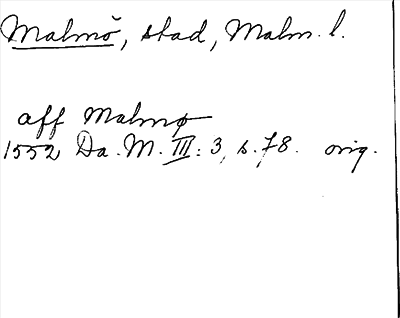 Malmö, stad, Malm. l.
aff Malmø
1552 Da. M. III: 3, s. 78. orig.